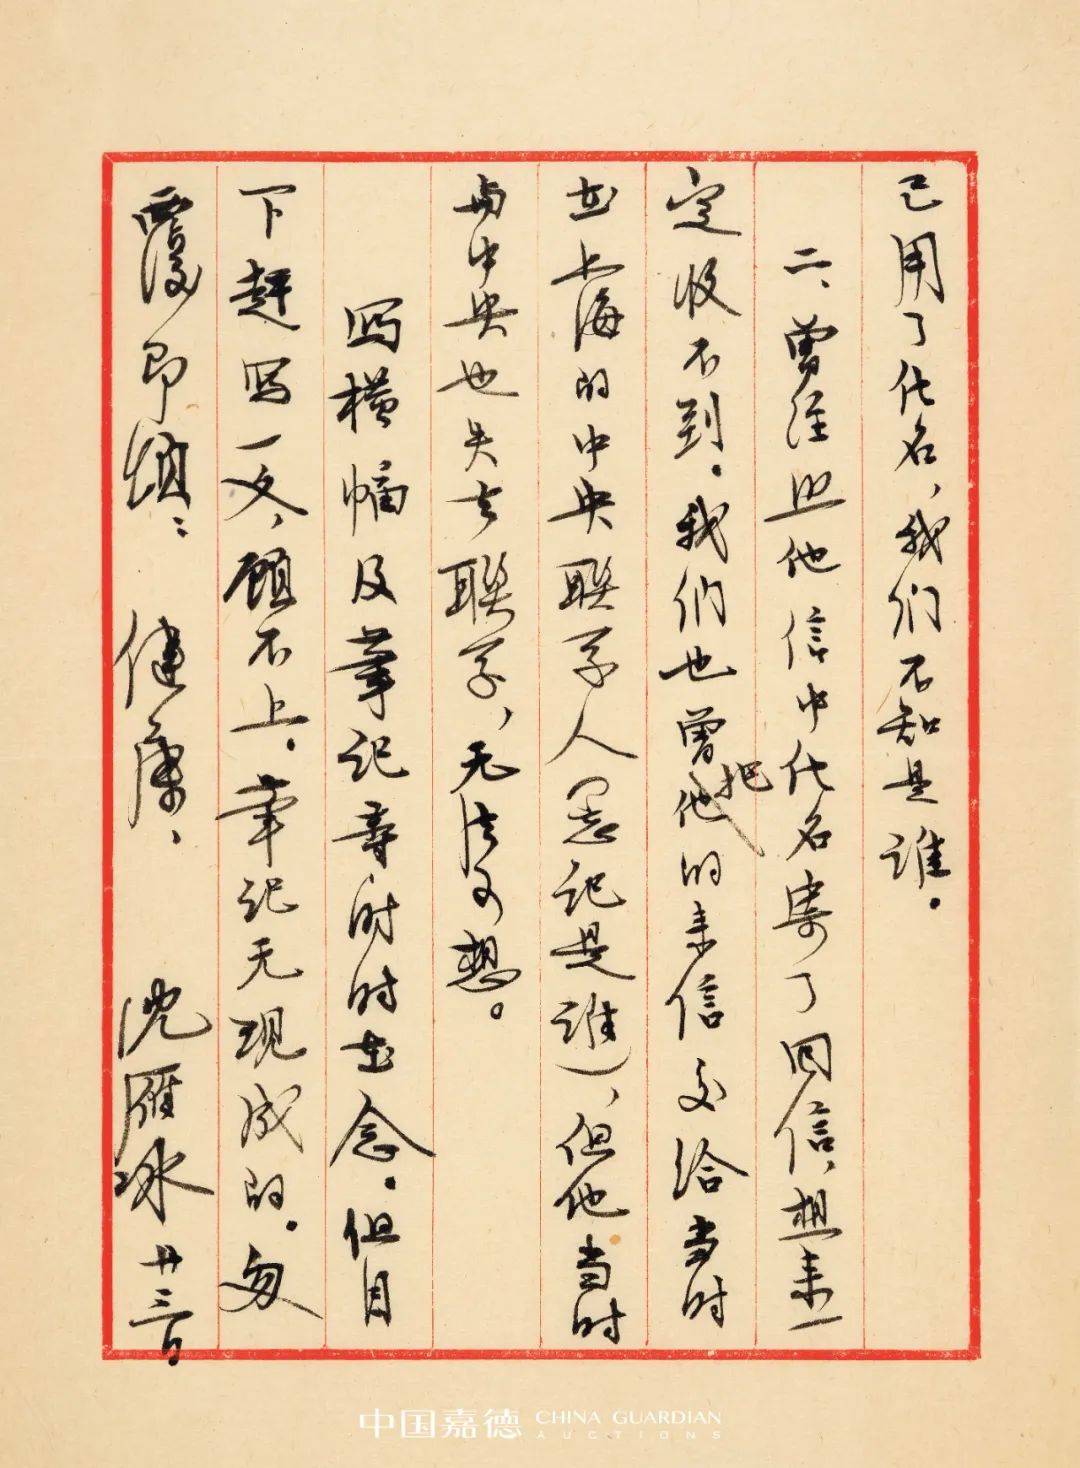 已用了代名，我们不知是谁。
二、曾经照他信中代名寄了回信，想来一
定收不到。我们也曾把他的来信交给当时
在上海的中央联系人（忘记是谁），但他当时
与中央也失去联系，无法可想。
写横幅及笔记等时时在念。但目
下赶写一文，顾不上。笔记无现成的。匆
覆即颂：健康，
沈雁冰 廿三日
中国嘉德 CHINA GUARDIAN
AUCTIONS